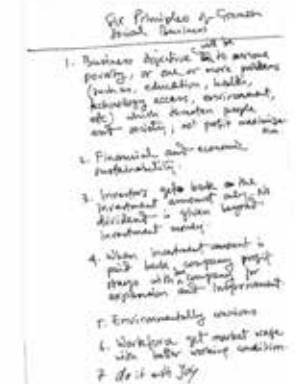 Six Principles of Grameen
Social Business
will be
1. Business Objective to overcome
poverty, or one or more problems
(such as, education, health,
technology access, environment,
etc) which threaten people
and society; not profit maximiza
tion
2. Financial and economic
sustainability.
3. Investors get back the
investment amount only. No
dividend is given beyond
investment money.
4. When investment amount is
paid back, company profit
stays with company for
expansion and improvement
5. Environmentally conscious
6. Workforce get market wage
with better working condition
7. do it with Joy